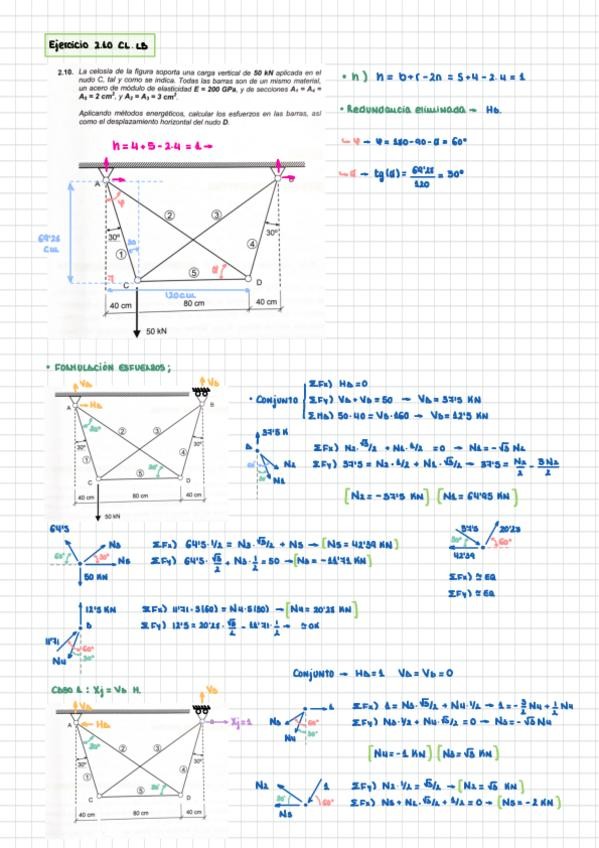 Ejercicio 2.10 CL. LB
2.10. La celosía de la figura soporta una carga vertical de 50 kN aplicada en el
nudo C, tal y como se indica. Todas las barras son de un mismo material,
un acero de módulo de elasticidad E = 200 GPa, y de secciones A₁ = A₄ =
A₅ = 2 cm², y A₂ = A₃ = 3 cm².
Aplicando métodos energéticos, calcular los esfuerzos en las barras, así
como el desplazamiento horizontal del nudo D.
h = 4 + 5 - 2·4 = 1 →
• h) h = b+r-2n = 5+4-2·4 = 1
• Redundancia eliminada → HB.
→ φ → φ = 180-90-α = 60°
→ α → tg(α) = 69'28/120 = 30°
A
B
φ
② ③
69'28 cm
30° 30 30°
① ④
⑤ α
C D
120cm
40 cm 80 cm 40 cm
50 kN
• FORMULACIÓN ESFUERZOS;
VA VB
A HA B
30°
② ③
30° 30°
① ④
30°
C ⑤ D
40 cm 80 cm 40 cm
50 kN
• CONJUNTO
ΣFx) HA = 0
ΣFy) VA + VB = 50 → VA = 37'5 KN
ΣMA) 50·40 = VB·160 → VB = 12'5 KN
37'5 K
N2
N1
ΣFx) N2·√3/2 + N1·1/2 = 0 → N1 = -√3 N2
ΣFy) 37'5 = N2·1/2 + N1·√3/2 → 37'5 = N2/2 - 3N2/2
[N2 = -37'5 KN] [N1 = 64'95 KN]
64'5
60° N3 30° N5
50 KN
ΣFx) 64'5·1/2 = N3·√3/2 + N5 → [N5 = 42'39 KN]
ΣFy) 64'5·√3/2 + N3·1/2 = 50 → [N3 = -11'71 KN]
37'5 20'28
30° 60°
42'39
ΣFx) ≅ EQ
ΣFy) ≅ EQ
12'5 KN
B
11'71 60°
N4 30°
ΣFx) 11'71·S(60) = N4·S(30) → [N4 = 20'28 KN]
ΣFy) 12'5 = 20'28·√3/2 - 11'71·1/2 → ≅ OK
CONJUNTO → HA = 1 VA = VB = 0
Caso 1: Xj = VB H.
VA VB
A HA B Xj=1
30°
② ③
30° 30°
① ④
30°
C ⑤ D
40 cm 80 cm 40 cm
1
N3 60°
N4 30°
ΣFx) 1 = N3·√3/2 + N4·1/2 → 1 = -3/2 N4 + 1/2 N4
ΣFy) N3·1/2 + N4·√3/2 = 0 → N3 = -√3 N4
[N4 = -1 KN] [N3 = √3 KN]
N2 1
60°
N5
ΣFy) N2·1/2 = √3/2 → [N2 = √3 KN]
ΣFx) N5 + N2·√3/2 + 1/2 = 0 → [N5 = -2 KN]